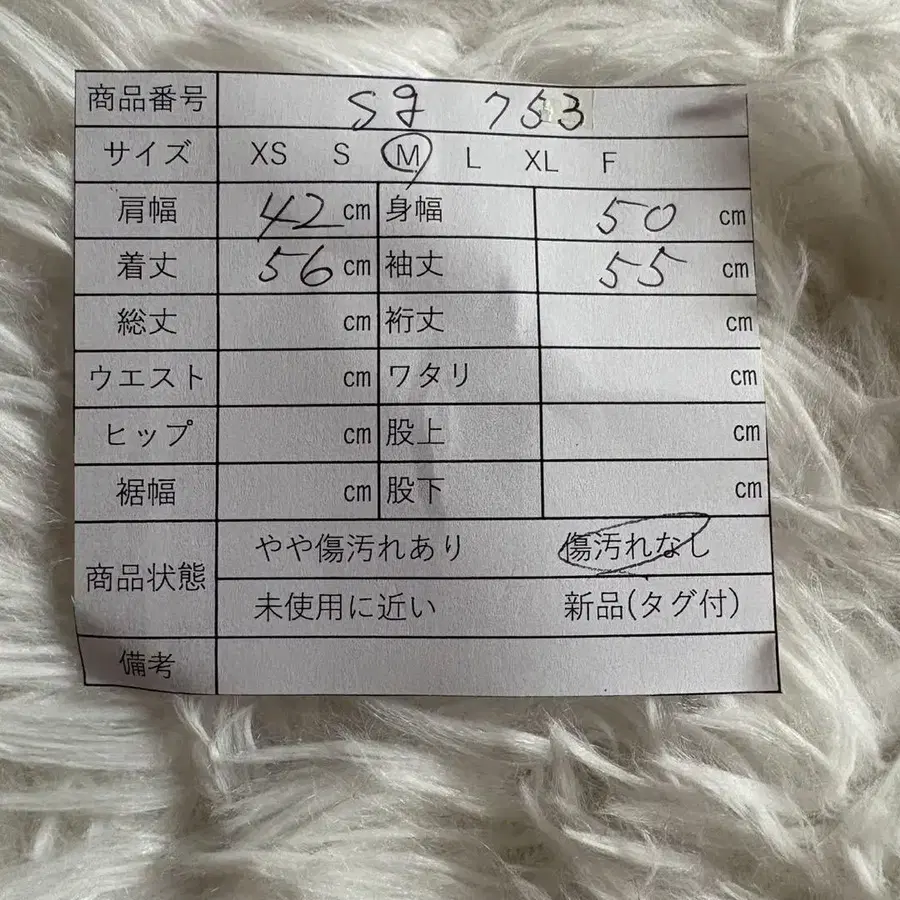 商品番号 sg 753
サイズ XS S M L XL F
肩幅 42 cm 身幅 50 cm
着丈 56 cm 袖丈 55 cm
総丈 cm 裄丈 cm
ウエスト cm ワタリ cm
ヒップ cm 股上 cm
裾幅 cm 股下 cm
商品状態 やや傷汚れあり 傷汚れなし
未使用に近い 新品(タグ付)
備考